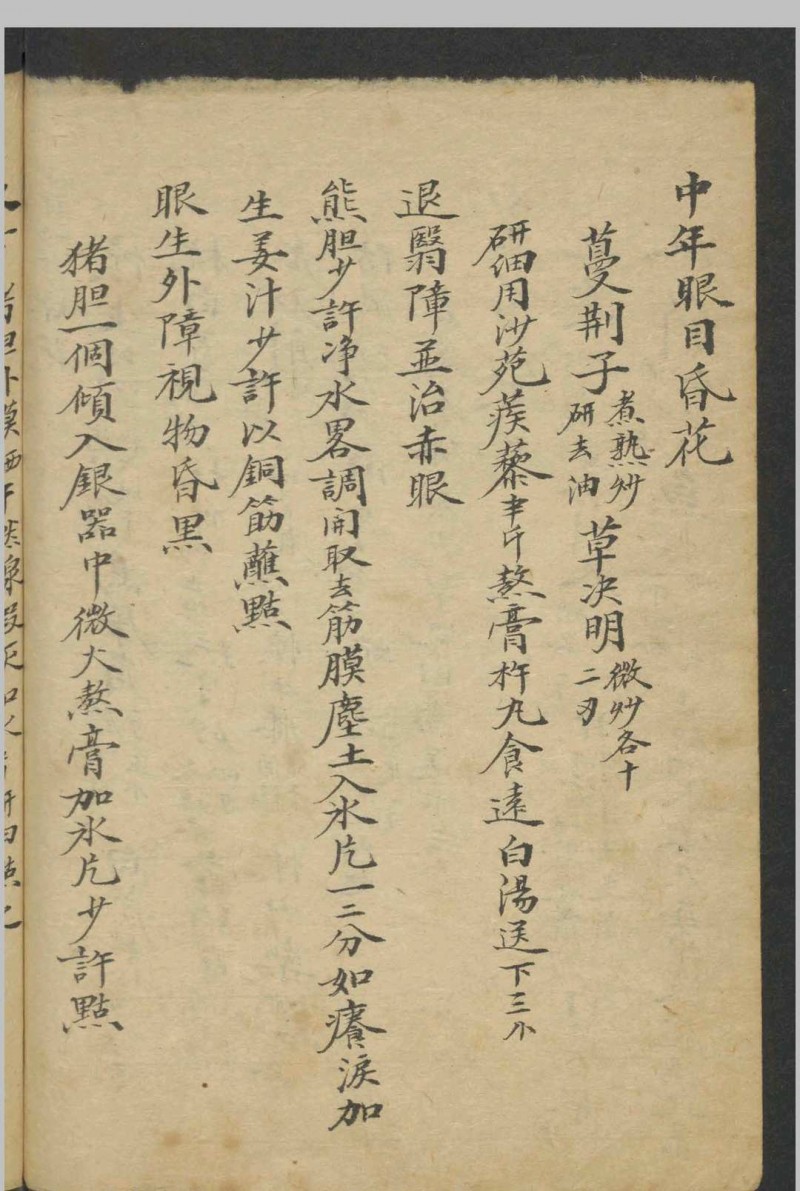 中年眼目昏花
蔓荆子煮熟炒研去油草决明微炒各十二刃
研细用沙苑蒺藜半斤熬膏杵丸食遠白湯送下三小
退翳障並治赤眼
熊胆少許净水畧調開取去筋膜塵土入氷片一二分如癢淚加
生姜汁少許以銅筯蘸點
眼生外障視物昏黑
猪胆一個傾入銀器中微火熬膏加氷片少許點